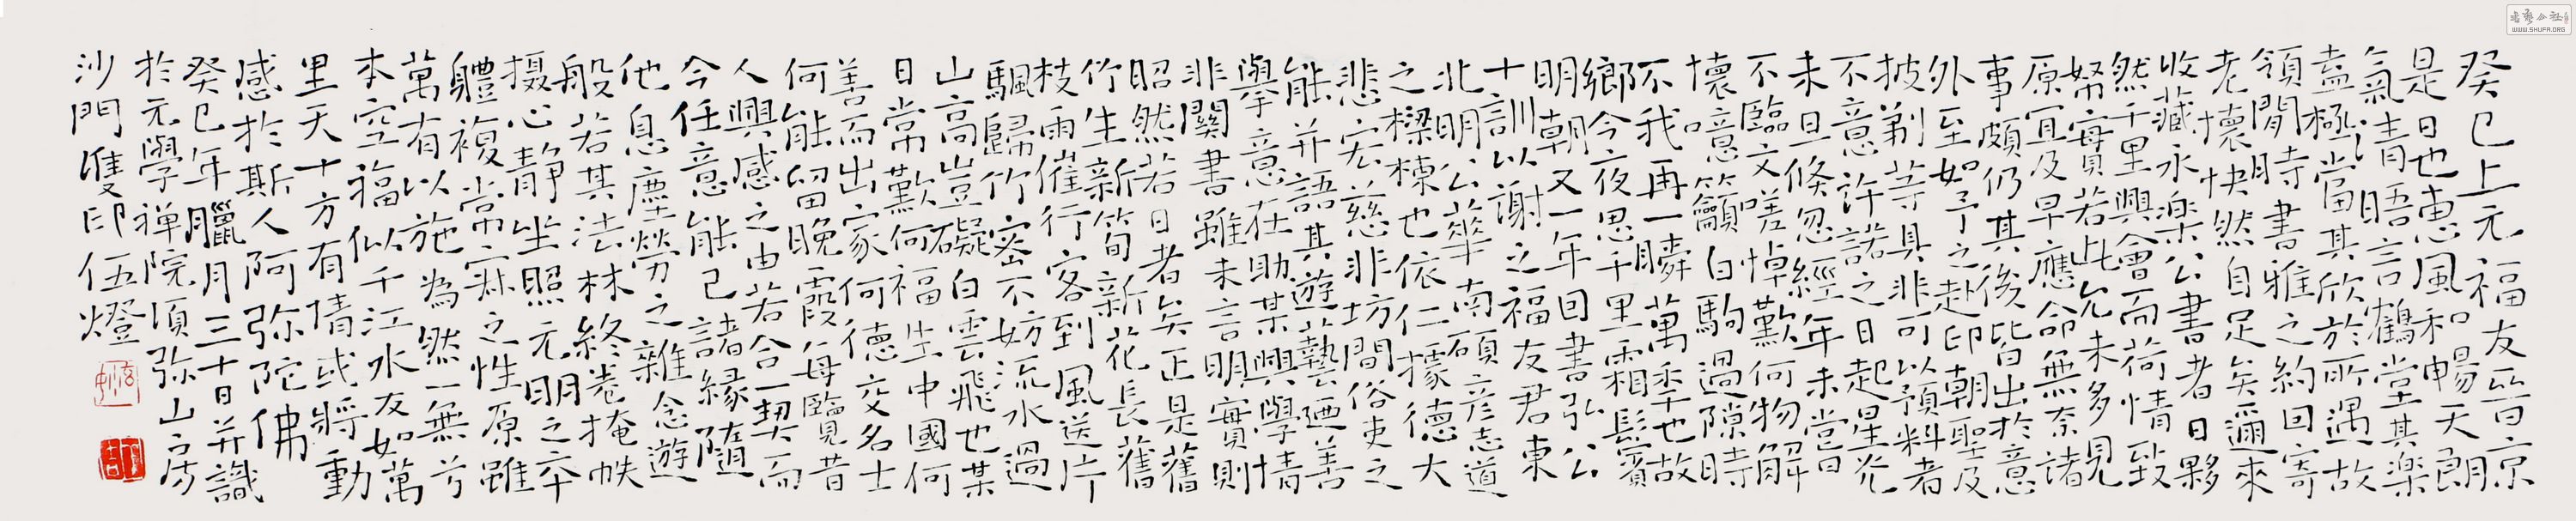 癸巳上元福友晉京
是日也惠風和暢天朗
氣清晤言鶴堂其樂
盍極當其欣於所遇故
領閒時書雅之約回寄
老懷快然自足矣邇來
收藏永樂公書者日夥
然千里興會而荷情致
帑實若此允未多見
原宜及早應命無奈諸
事頗仍其後皆出於意
外至如予之赴印朝聖及
披剃等具非可以預料者
不意許諾之日起星光
未旦倏忽經年未嘗日
不臨文嗟悼歎何物解
懷噫籲白駒過隙時
不我再一瞬萬季也故
鄉今夜思千里霜鬢賓
明朝又一年回書弘公
十訓以謝之福友君東
北明公華南碩彦志道
之樑棟也依仁據德大
悲宏慈非坊間俗吏之
能并語其遊藝廼善
學意在助某興學情
非關書雖未言明實則
昭然若日者矣正是舊
竹生新筍新花長舊
枝雨催行客到風送片
颿歸竹密不妨流水過
山高豈礙白雲飛也某
日常歎何福生中國何
善而出家何德交名士
何能留晚霞每覽昔
人興感之由若合一契而
今任意能己諸緣隨
他息塵勞之雜念遊
般若其法林終卷掩帙
摄心靜坐照元明之本
體複常寂之性原雖
萬有以施為然一無兮
本空福似千江水友如萬
里天十方有情或將動
感於斯人阿弥陀佛
癸巳年臘月三十日并識
於元學禅院頃弥山房
沙門雙印伍燈
WWW.SHUFA.ORG